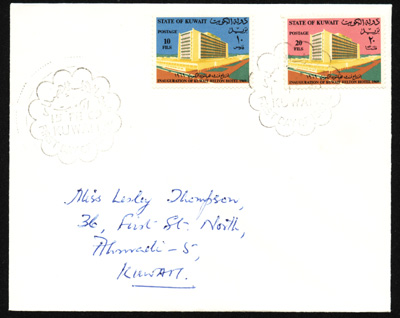 STATE OF KUWAIT دولة الكويت
POSTAGE
10
FILS
١٠
فلوس
INAUGURATION OF KUWAIT HILTON HOTEL 1969
STATE OF KUWAIT دولة الكويت
POSTAGE
20
FILS
٢٠
فلسا
INAUGURATION OF KUWAIT HILTON HOTEL 1969
KUWAIT
KUWAIT
Miss Lesley Thompson,
36, First St. North,
Ahmadi - 5,
KUWAIT.